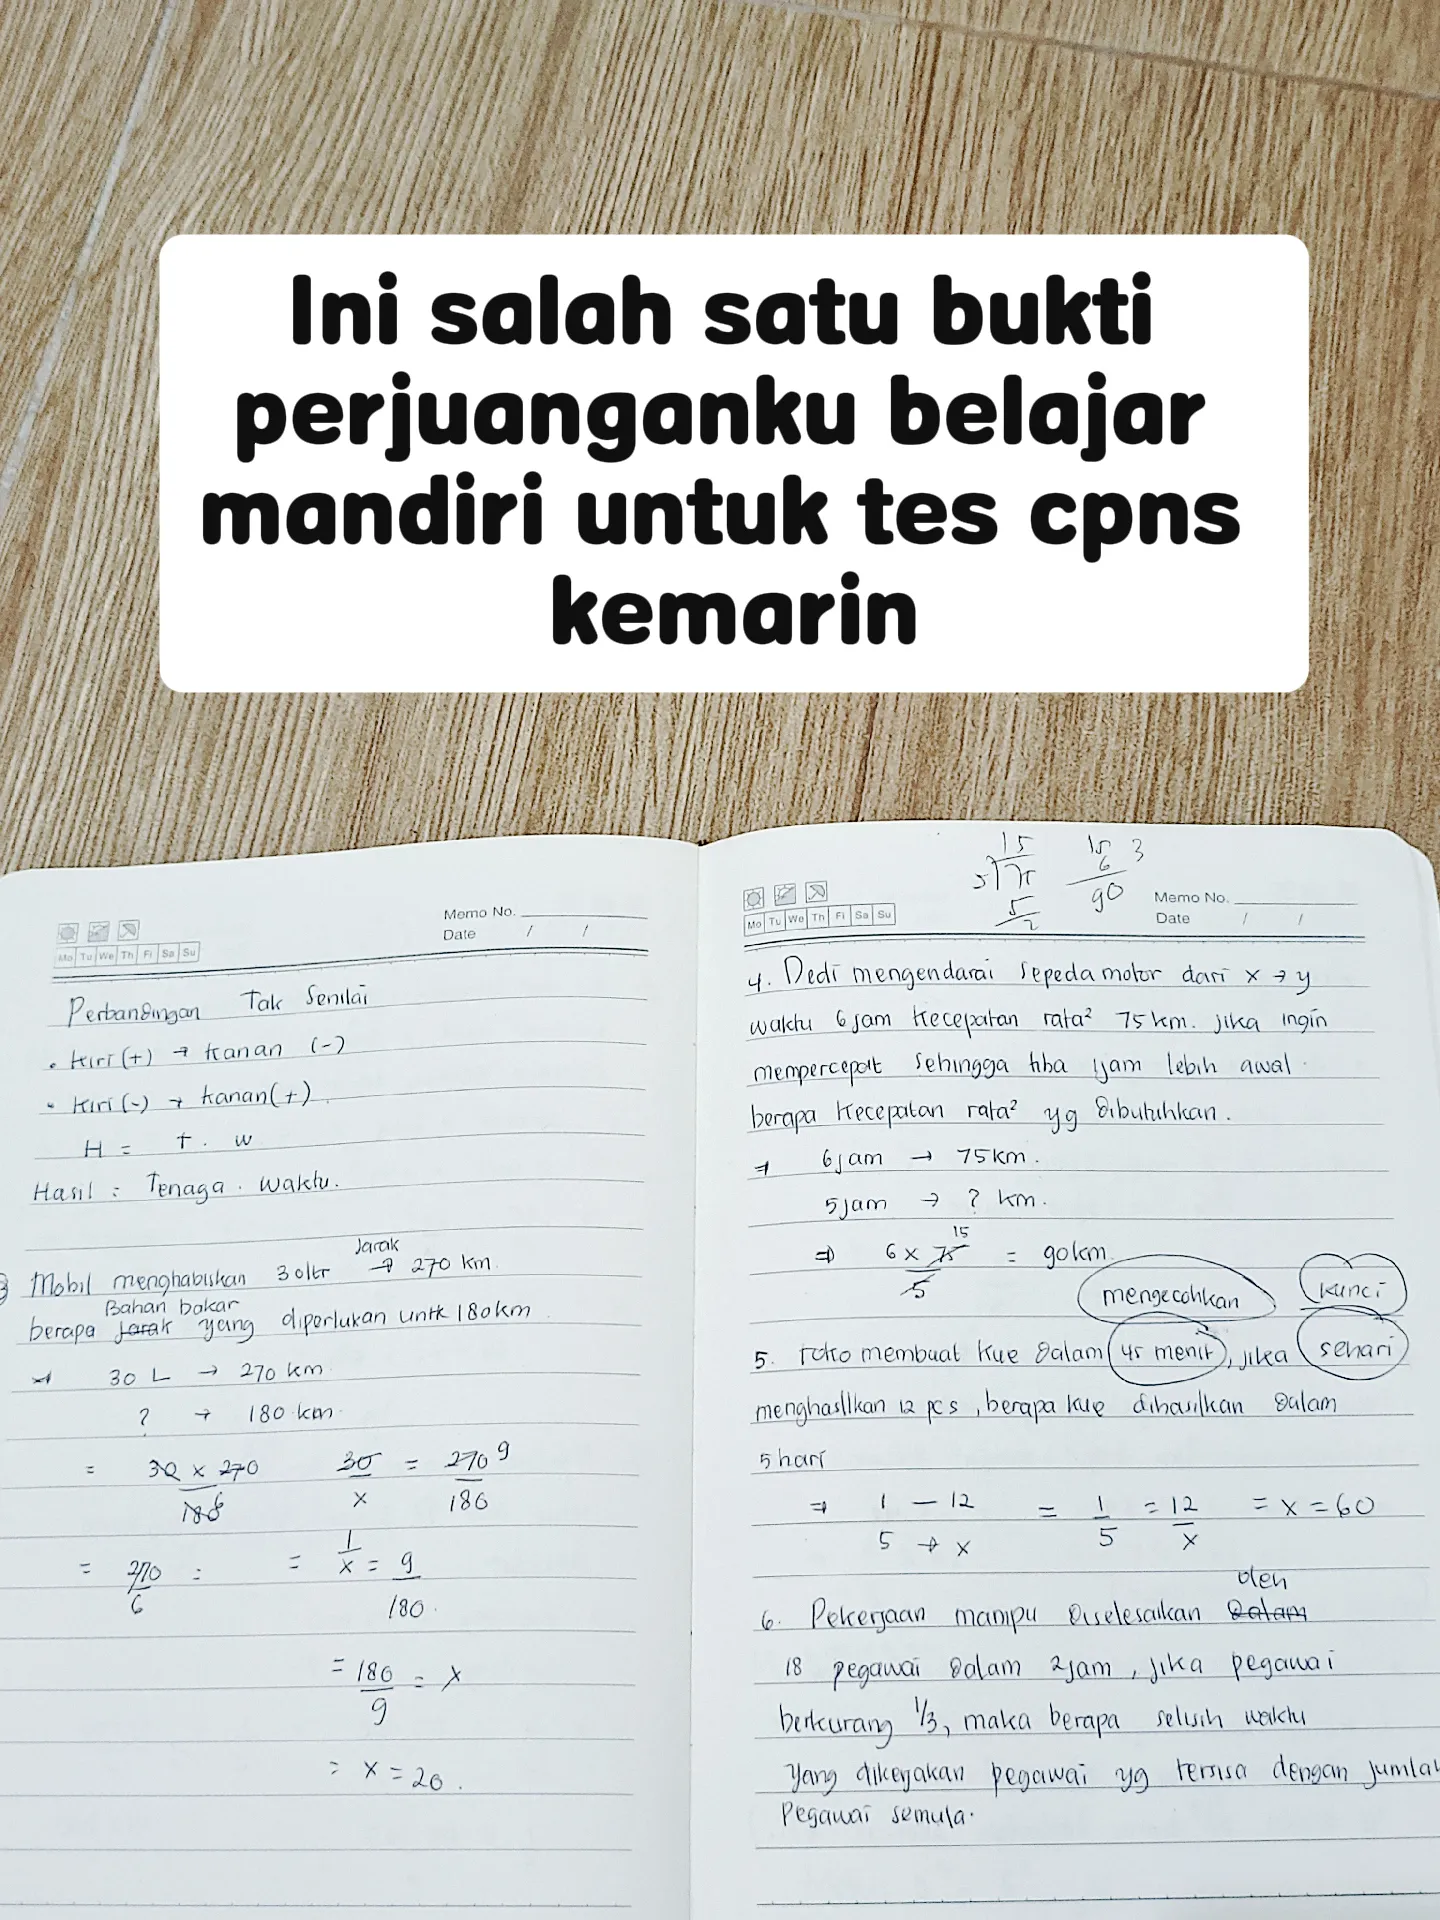 Ini salah satu bukti
perjuanganku belajar
mandiri untuk tes cpns
kemarin
Memo No.
Date / /
Mo Tu We Th Fi Sa Su
Perbandingan Tak Senilai
• Kiri (+) → kanan (-)
• Kiri (-) → kanan (+)
H = t . w
Hasil = Tenaga . waktu.
Jarak
3 Mobil menghabiskan 30 ltr → 270 km.
Bahan bakar
berapa Jarak yang diperlukan untk 180km
⇒ 30 L → 270 km
? → 180 km
= 30 x 270 / 180 6
30 / x = 270 9 / 180
= 270 / 6 =
= 1 / x = 9 / 180
= 180 / 9 = x
= x = 20.
15
5 75
5
2
15 3
6
90
Memo No.
Date / /
Mo Tu We Th Fri Sa Su
4. Dedi mengendarai sepeda motor dari x → y
waktu 6 jam kecepatan rata² 75 km. jika ingin
mempercepat sehingga tiba 1 jam lebih awal.
berapa kecepatan rata² yg dibutuhkan.
⇒ 6 jam → 75 km.
5 jam → ? km.
⇒ 6 x 75 15 / 5 = 90 km
mengecohkan kunci
5. Toko membuat kue dalam 45 menit, jika sehari
menghasilkan 12 pcs, berapa kue dihasilkan dalam
5 hari
⇒ 1 – 12 = 1 / 5 = 12 / x = x = 60
5 → x
oleh
6. Pekerjaan mampu diselesaikan dalam
18 pegawai dalam 2 jam, jika pegawai
berkurang 1/3, maka berapa selisih waktu
yang dikerjakan pegawai yg tersisa dengan jumlah
pegawai semula.